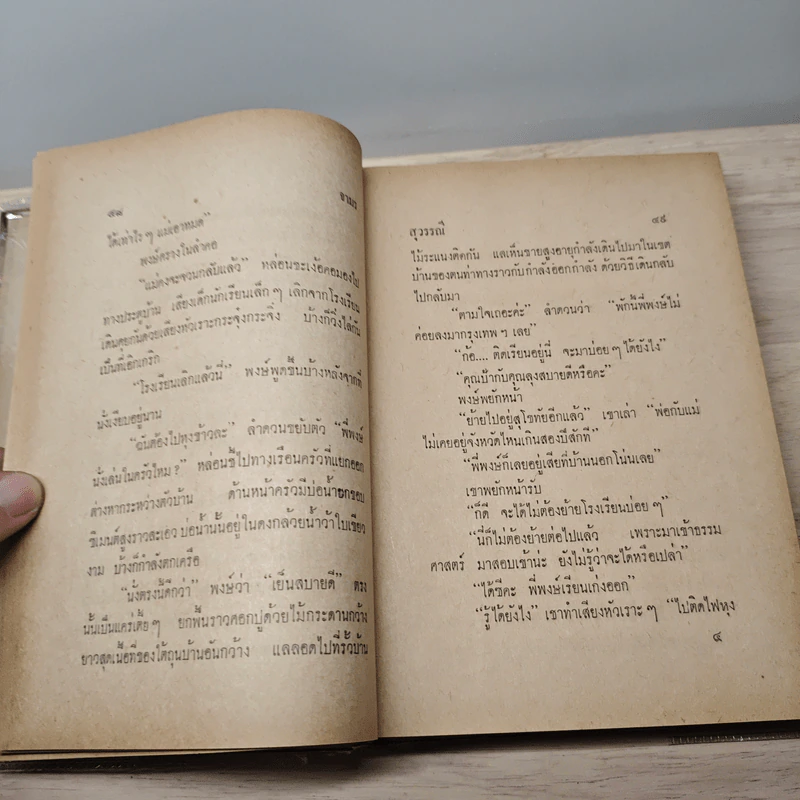 ๔๘ อาเมร
ได้เท่าไร ๆ แม่เอาหมด”
พงษ์ครางในลำคอ
“แม่คงจะจวนกลับแล้ว” หล่อนชะเง้อคอมองไป
ทางประตูบ้าน เสียงเด็กนักเรียนเล็ก ๆ เลิกจากโรงเรียน
เดินคุยกันด้วยเสียงหัวเราะกระจุ๋งกระจิ๋ง บ้างก็วิ่งไล่กัน
เป็นที่เอิกเกริก
“โรงเรียนเลิกแล้วนี่” พงษ์พูดขึ้นบ้างหลังจากที่
นั่งเงียบอยู่นาน
“ฉันต้องไปหุงข้าวละ” ลำดวนขยับตัว “พี่พงษ์
นั่งเล่นในครัวไหม ?” หล่อนชี้ไปทางเรือนครัวที่แยกออก
ต่างหากระหว่างตัวบ้าน ด้านหน้าครัวมีบ่อน้ำยกขอบ
ซิเมนต์สูงราวสะเอว บ่อน้ำนั้นอยู่ในดงกล้วยน้ำว้าใบเขียว
งาม บ้างก็กำลังตกเครือ
“นั่งตรงนี้ดีกว่า” พงษ์ว่า “เย็นสบายดี” ตรง
นั้นเป็นแคร่เตี้ย ๆ ยกพื้นราวศอกปูด้วยไม้กระดานกว้าง
ยาวสุดเนื้อที่ของใต้ถุนบ้านอันกว้าง แลลอดไปที่รั้วบ้าน
สุวรรณี ๔๙
ไม้ระแนงติดกัน แลเห็นชายสูงอายุกำลังเดินไปมาในเขต
บ้านของตนท่าทางราวกับกำลังออกกำลัง ด้วยวิธีเดินกลับ
ไปกลับมา
“ตามใจเถอะค่ะ” ลำดวนว่า “พักนี้พี่พงษ์ไม่
ค่อยลงมากรุงเทพ ฯ เลย”
“ก้อ.... ติดเรียนอยู่นี่ จะมาบ่อย ๆ ได้ยังไง”
“คุณป้ากับคุณลุงสบายดีหรือคะ”
พงษ์พยักหน้า
“ย้ายไปอยู่สุโขทัยอีกแล้ว” เขาเล่า “พ่อกับแม่
ไม่เคยอยู่จังหวัดไหนเกินสองปีสักที”
“พี่พงษ์ก็เลยอยู่เสียที่บ้านนอกโน่นเลย”
เขาพยักหน้ารับ
“ก็ดี จะได้ไม่ต้องย้ายโรงเรียนบ่อย ๆ”
“นี่ก็ไม่ต้องย้ายต่อไปแล้ว เพราะมาเข้าธรรม
ศาสตร์ มาสอบเข้าน่ะ ยังไม่รู้ว่าจะได้หรือเปล่า”
“ได้ซีคะ พี่พงษ์เรียนเก่งออก”
“รู้ได้ยังไง” เขาทำเสียงหัวเราะ ๆ “ไปติดไฟหุง
๔